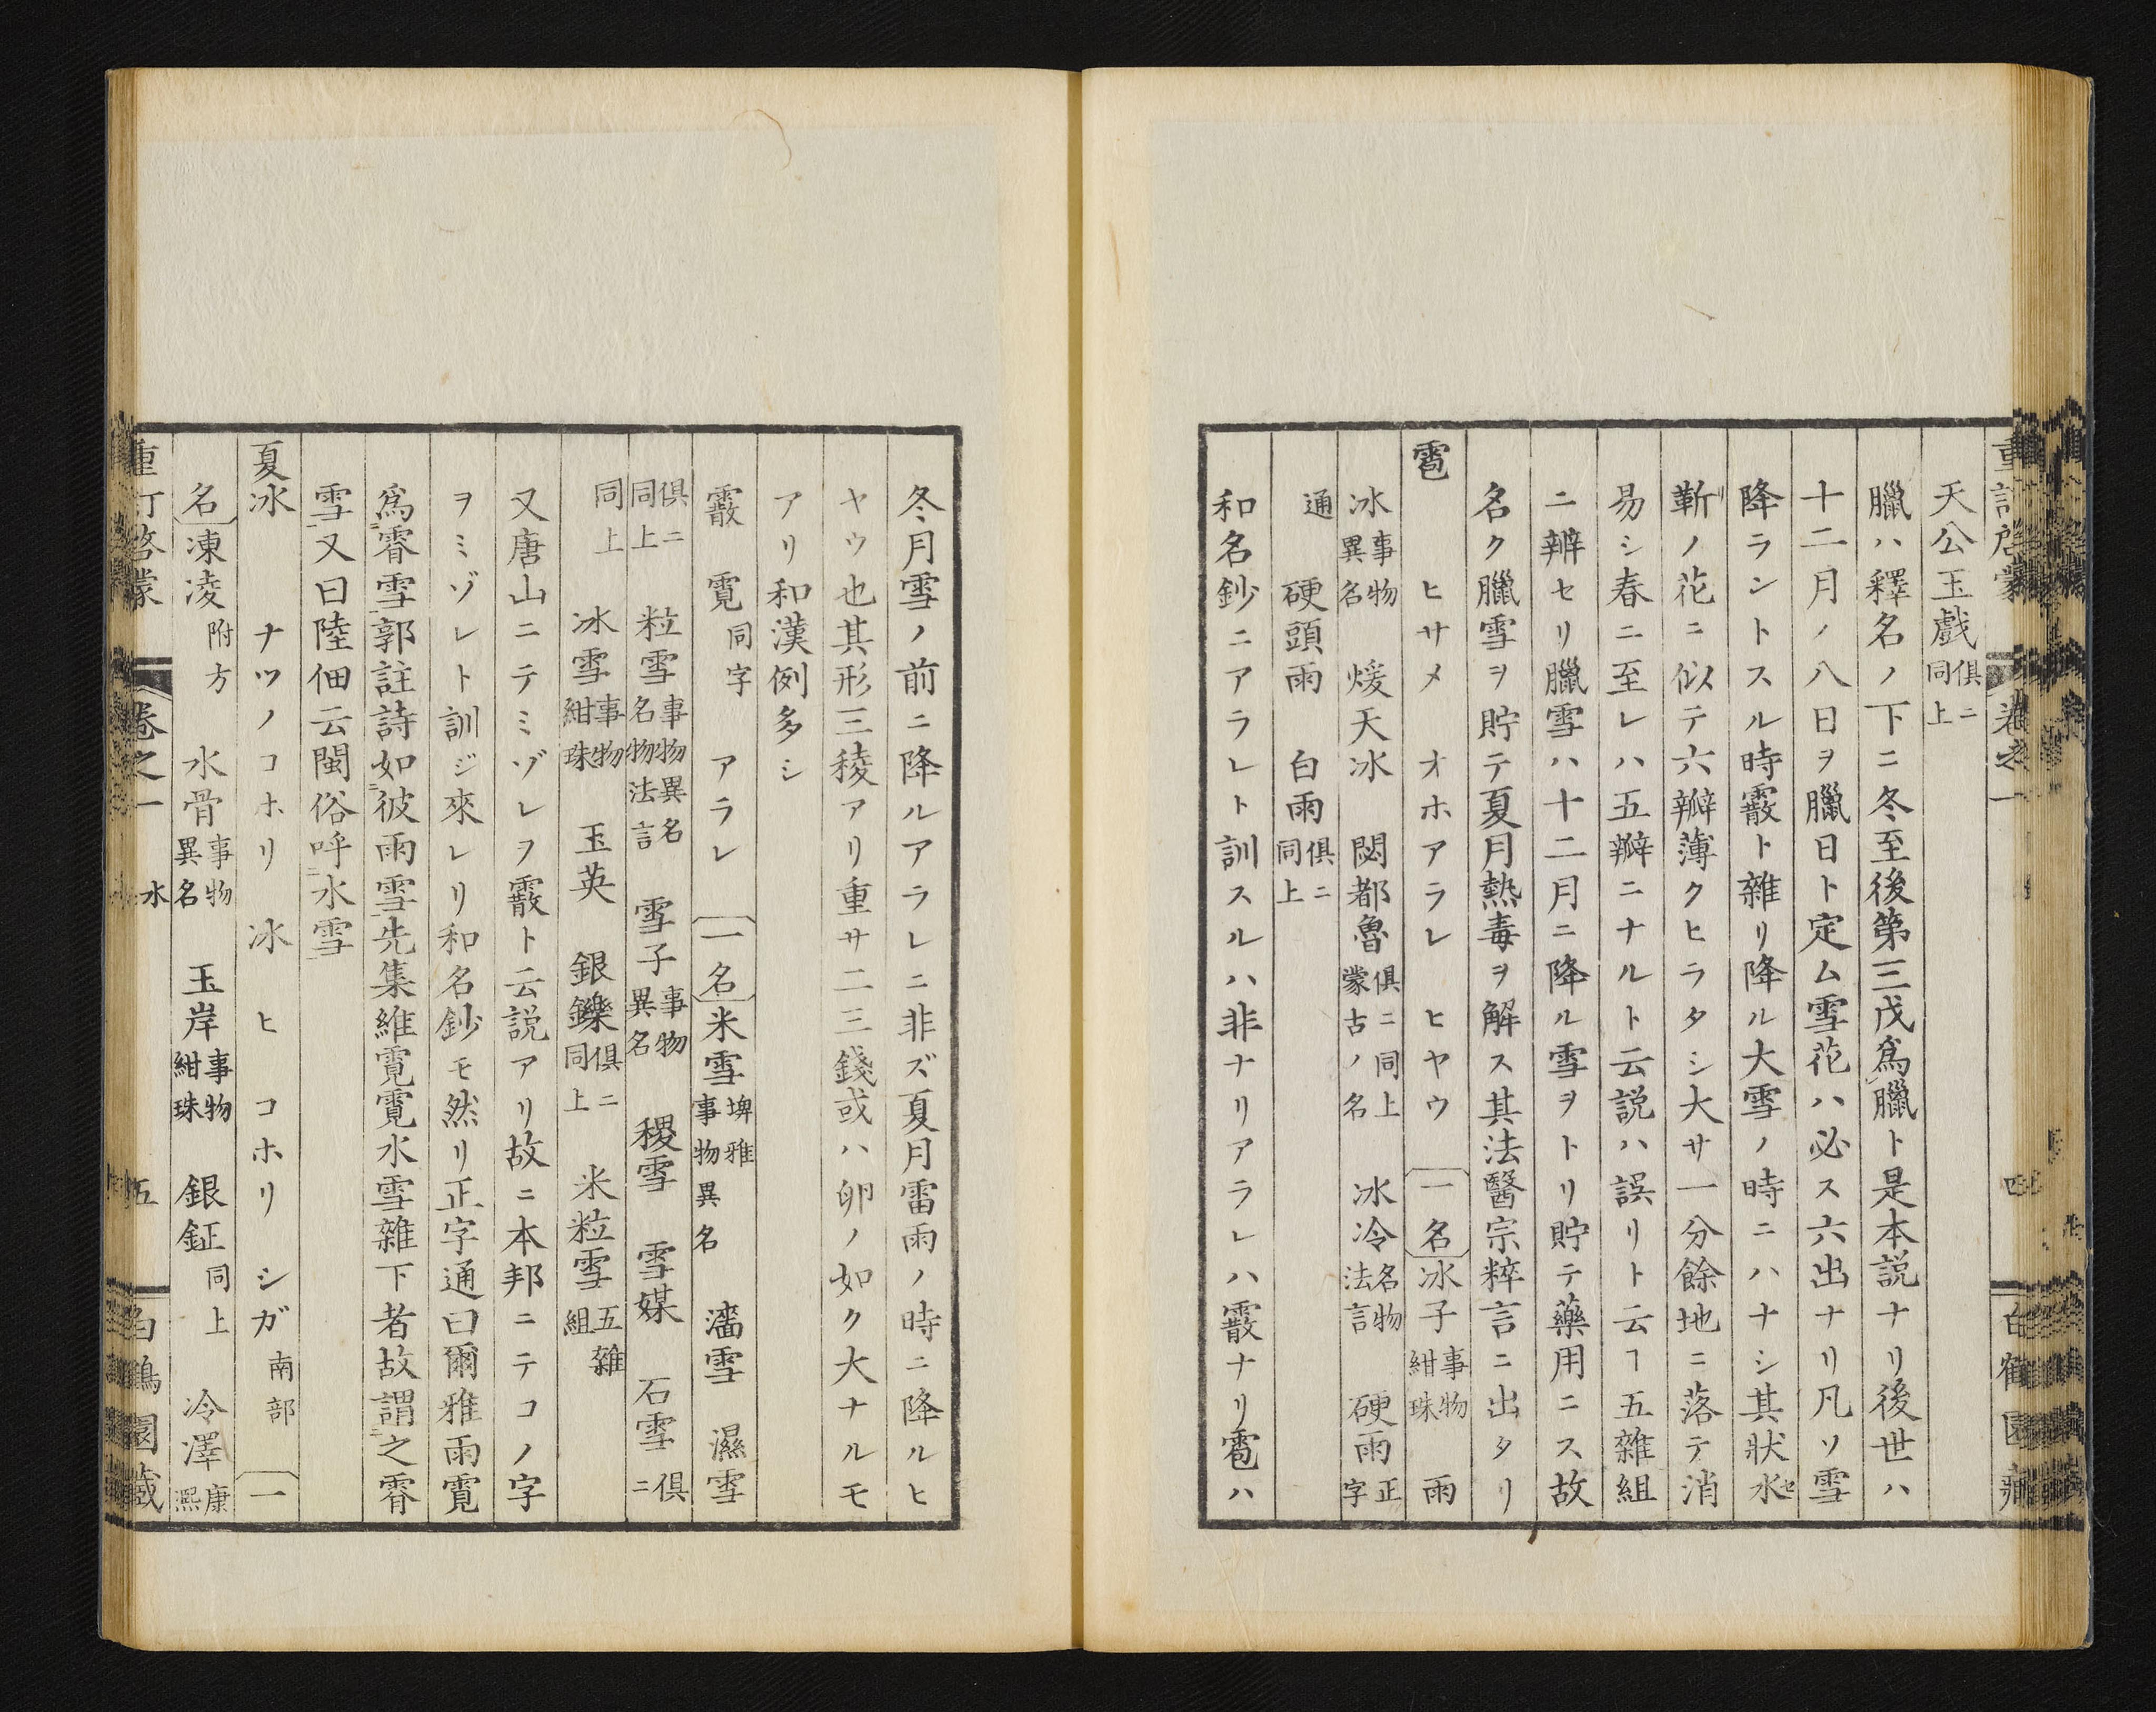 天公玉戲俱ニ同上
臘ハ釋名ノ下ニ冬至後第三戊爲臘ト是本説ナリ後世ハ
十二月ノ八日ヲ臘日ト定ム雪花ハ必ス六出ナリ凡ソ雪
降ラントスル時霰ト雜リ降ル大雪ノ時ニハナシ其狀水セ
蔪リノ花ニ似テ六瓣薄クヒラタシ大サ一分餘地ニ落テ消
易シ春ニ至レハ五瓣ニナルト云説ハ誤リト云ヿ五雜組
ニ辨セリ臘雪ハ十二月ニ降ル雪ヲトリ貯テ藥用ニス故
名ク臘雪ヲ貯テ夏月熱毒ヲ解ス其法醫宗粹言ニ出タリ
雹 ヒサメ オホアラレ ヒヤウ 一名 冰子事物紺珠 雨
冰事物異名 煖天冰 閟都魯俱ニ同上蒙古ノ名 冰冷名物法言 硬雨正字
通 硬頭雨 白雨俱ニ同上
和名鈔ニアラレト訓スルハ非ナリアラレハ霰ナリ雹ハ
冬月雪ノ前ニ降ルアラレニ非ズ夏月雷雨ノ時ニ降ルヒ
ヤウ也其形三稜アリ重サ二三錢或ハ卵ノ如ク大ナルモ
アリ和漢例多シ
霰 霓同字 アラレ 一名 米雪埤雅事物異名 濇雪 濕雪
俱ニ同上 粒雪事物異名名物法言 雪子事物異名 稷雪 雪媒 石雪俱ニ
同上 冰雪事物紺珠 玉英 銀鑠俱ニ同上 米粒雪五雜組
又唐山ニテミゾレヲ霰ト云説アリ故ニ本邦ニテコノ字
ヲミゾレト訓ジ來レリ和名鈔モ然リ正字通曰爾雅雨霓
爲霄雪郭註詩如彼雨雪先集維霓霓水雪雜下者故謂之霄
雪又曰陸佃云閩俗呼水雪
夏冰 ナツノコホリ 冰 ヒ コホリ シガ南部 一
名 凍凌附方 水骨事物異名 玉岸事物紺珠 銀鉦同上 冷澤康熙
重訂啓蒙 卷之一 水 五 白鶴園藏